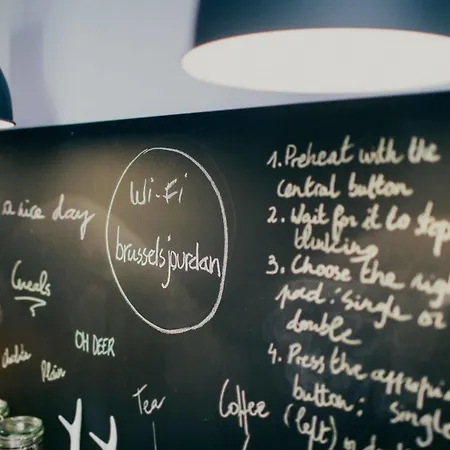 a nice day
Wi-Fi
brusselsjourdan
Cereals
Plain
OH DEER
Tea
Coffee
1. Preheat with the
central button
2. Wait for it to stop
thinking
3. Choose the
pad: single or
double
4. Press the
button: single
(left)